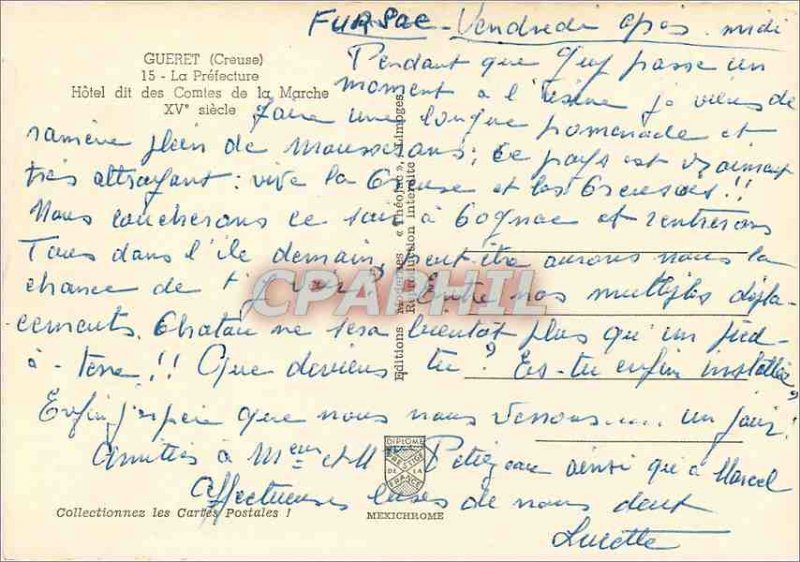 FURSAC - Vendredi après-midi
GUERET (Creuse)
15 - La Préfecture
Hôtel dit des Comtes de la Marche
XVe siècle
Pendant que passe un
moment à l'usine je viens de
faire une longue promenade et
ramène plein de mousserons; ce pays est vraiment
très attrayant : vive la Creuse et les Creusois !!
Nous coucherons ce soir à Cognac et rentrerons
Tous dans l'île demain, peut-être aurons nous la
chance de t'y voir ? Entre nos multiples dépla-
cements, Chatou ne sera bientôt plus qu'un pied-
à-terre !! Que deviens tu ? Es-tu enfin installée ?
Enfin j'espère que nous nous verrons..... un jour !
Amitiés à Meur et M Petitjeau ainsi qu'à Marcel
Affectueuses bises de nous deux
Lucette
Editions Modernes « Théojac », Limoges
Reproduction Interdite
CPAPHIL
DIPLOME
PRESTIGE
DE LA
FRANCE
MEXICHROME
Collectionnez les Cartes Postales !